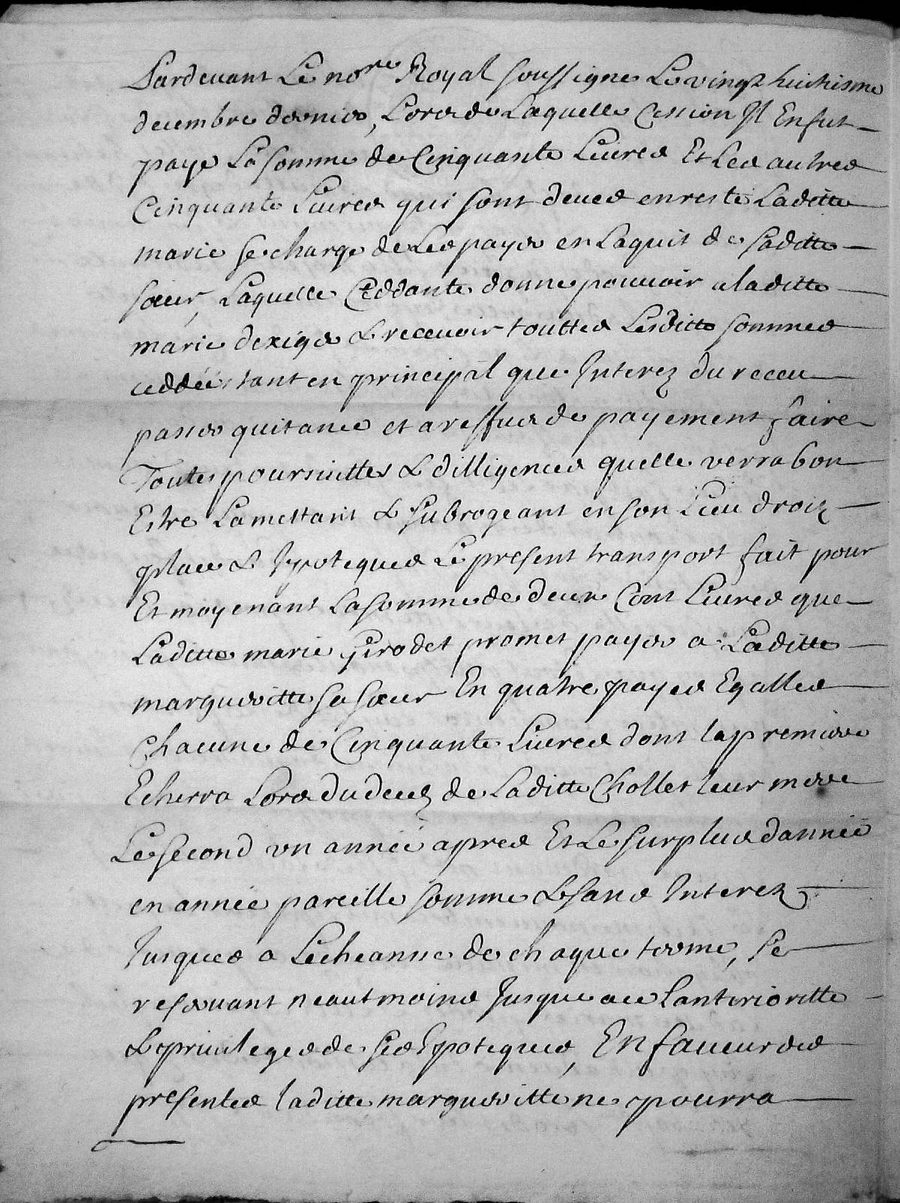 Pardevant Le no.re Royal soussigne Le vingt huitisme
decembre dernier, Lors de Laquelle Cession Il En fut
paye La somme de Cinquante Livres Et Les autres
Cinquante Livres qui sont deues en reste Laditte
marie se charge de Les payer en Laquit de saditte
sœur, Laquelle Ceddante donne pouvoir a laditte
marie dexiger & recevoir touttes Lesditte sommes
ceddées tant en principal que Interez du receu
passer quitance et a reffus de payement faire
Toutes poursuittes & dilligences quelle verra bon
Estre La mettant & subrogeant en son Lieu droiz
place & Ypoteques Le present transport fait pour
Et moyenant La somme de deux Cent Livres que
Laditte marie Girodet promet payer a Laditte
margueritte sa sœur En quatre payes Egalles
Chacune de Cinquante Livres dont la premiere
Echerra Lors du decez de Laditte Chollet leur mere
Le second un année apres Et Le surplus dannée
en année pareille somme & sans Interez
Jusques a Lecheanne de chaque terme, se
reservant neautmoins Jusque a ce Lanterioritte
& privileges de ses Ypoteques, En faveur des
presentes laditte margueritte ne pourra